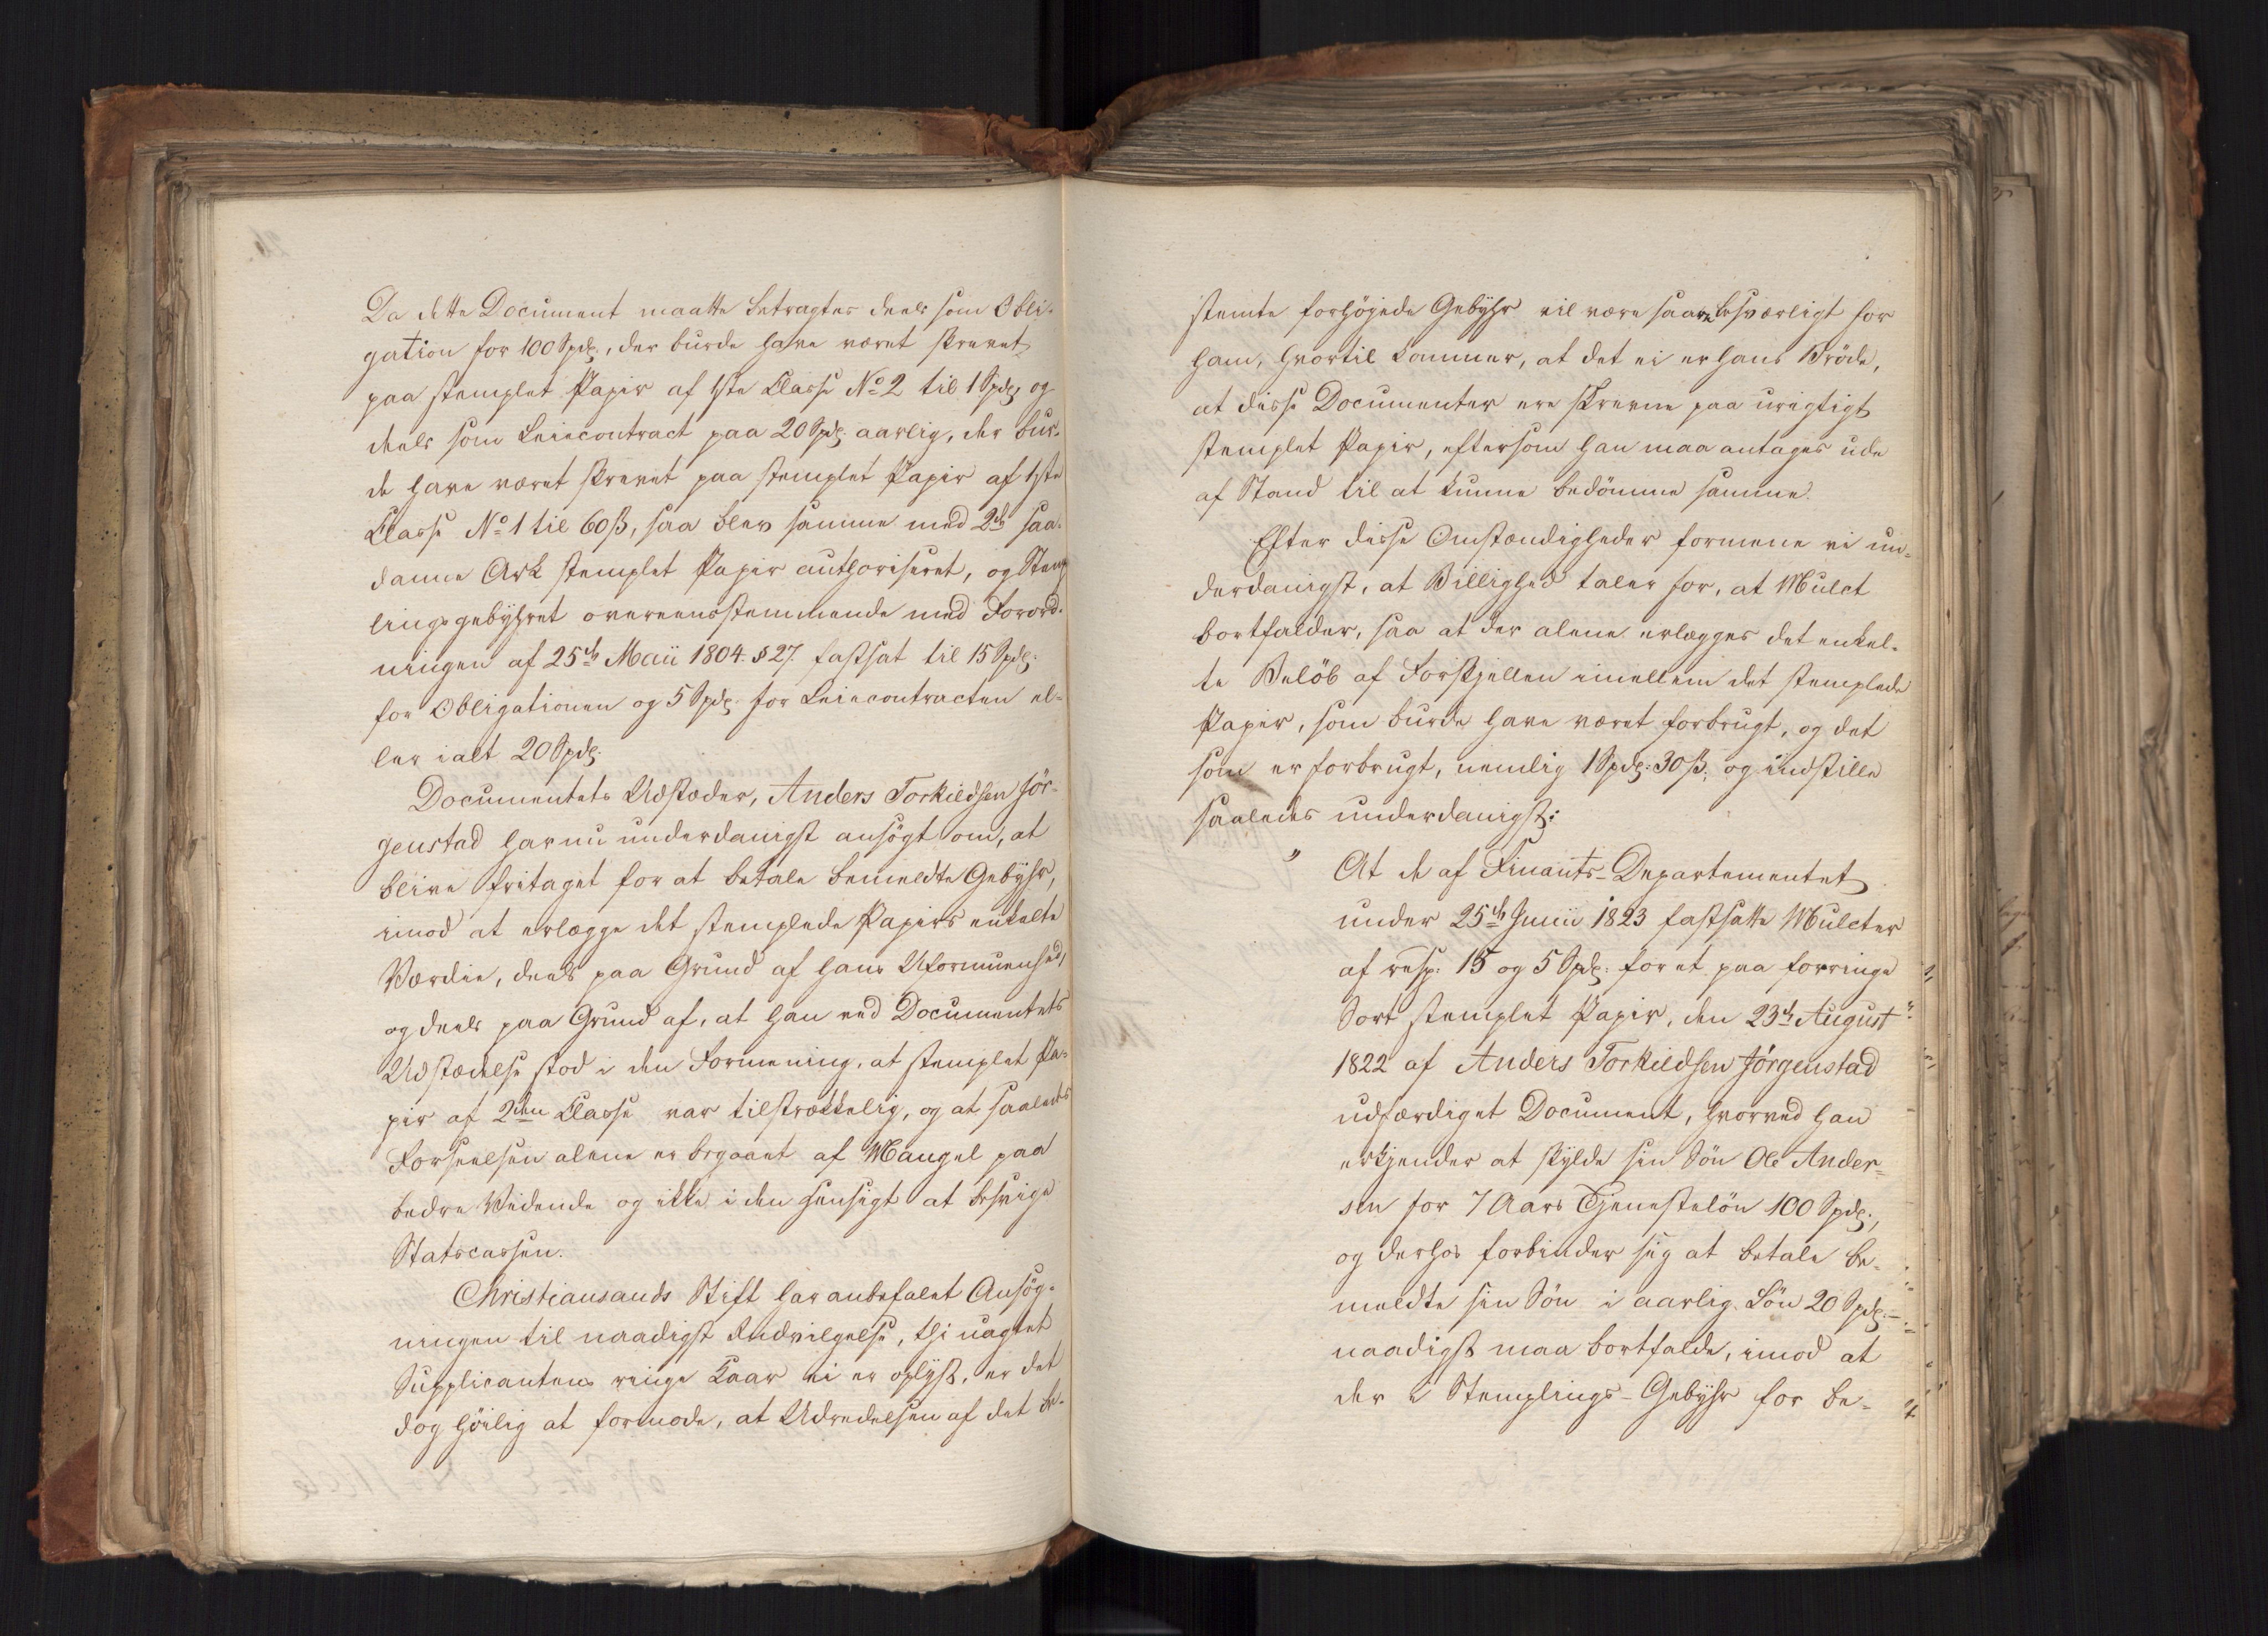 Da dette Document maatte betragtes deels som Obli-
gation for 100 Spd:, der burde have været skrevet
paa stemplet Papir af 1ste Classe No 2 til 1 Spd: og
deels som Leiecontract paa 20 Spd: aarlig, der bur-
de have været skrevet paa stemplet Papir af 1ste
Classe No 1 til 60 ß, saa blev samme med 2de saa-
danne Ark stemplet Papir authoriseret, og Stemp
lingsgebyhret overeensstemmende med Forord-
ningen af 25de Maii 1804. § 27. fastsat til 15 Spd:
for Obligationen og 5 Spd: for Leiecontracten el-
ler ialt 20 Spd:
Documentets Udstæder, Anders Torkildsen Jör-
genstad har nu underdanigst ansögt om, at
blive fritaget for at betale bemeldte Gebyhr,
imod at erlægge det stemplede Papirs enkelte
Værdie, deels paa Grund af hans Uformuenhed,
og deels paa Grund af, at han ved Documentets
Udstædelse stod i den Formening, at stemplet Pa-
pir af 2den Classe var tilstrækkelig, og at saaledes
Forseelsen alene er begaaet af Mangel paa
bedre Vidende og ikke i den Hensigt at besvige
Statscassen.
Christiansands Stift har anbefalet Ansög-
ningen til naadigst Indvilgelse, thi uagtet
Supplicantens ringe Kaar ei er oplyst, er det
dog höilig at formode, at Udredelsen af det be-
stemte forhöjede Gebyhr vil være saare besværligt for
ham, hvortil kommer, at det ei er hans Bröde,
at disse Documenter ere skrevne paa urigtigt
stemplet Papir, eftersom han maa antages ude
af Stand til at kunne bedömme samme.
Efter disse Omstændigheder formene vi un-
derdanigst, at Billighed taler for, at Mulct
bortfalder, saa at der alene erlægges det enkel-
te Belöb af Forskjellen imellem det stemplede
Papir, som burde have været forbrugt, og det
som er forbrugt, nemlig 1 Spd: 30 ß; og indstille
saaledes underdanigst:
" At de af Finants-Departementet
under 25de Junii 1823 fastsatte Mulcter
af resp: 15 og 5 Spd: for et paa forringe
Sort stemplet Papir, den 23de August
1822 af Anders Torkildsen Jörgenstad
udfærdiget Document, hvorved han
erkjender at skylde sin Sön Ole Ander-
sen for 7 Aars Tjenestelön 100 Spd:,
og derhos forbinder sig at betale be-
meldte sin Sön i aarlig Lön 20 Spd: -
naadigst maa bortfalde, imod at
der i Stemplings-Gebyhr for be-